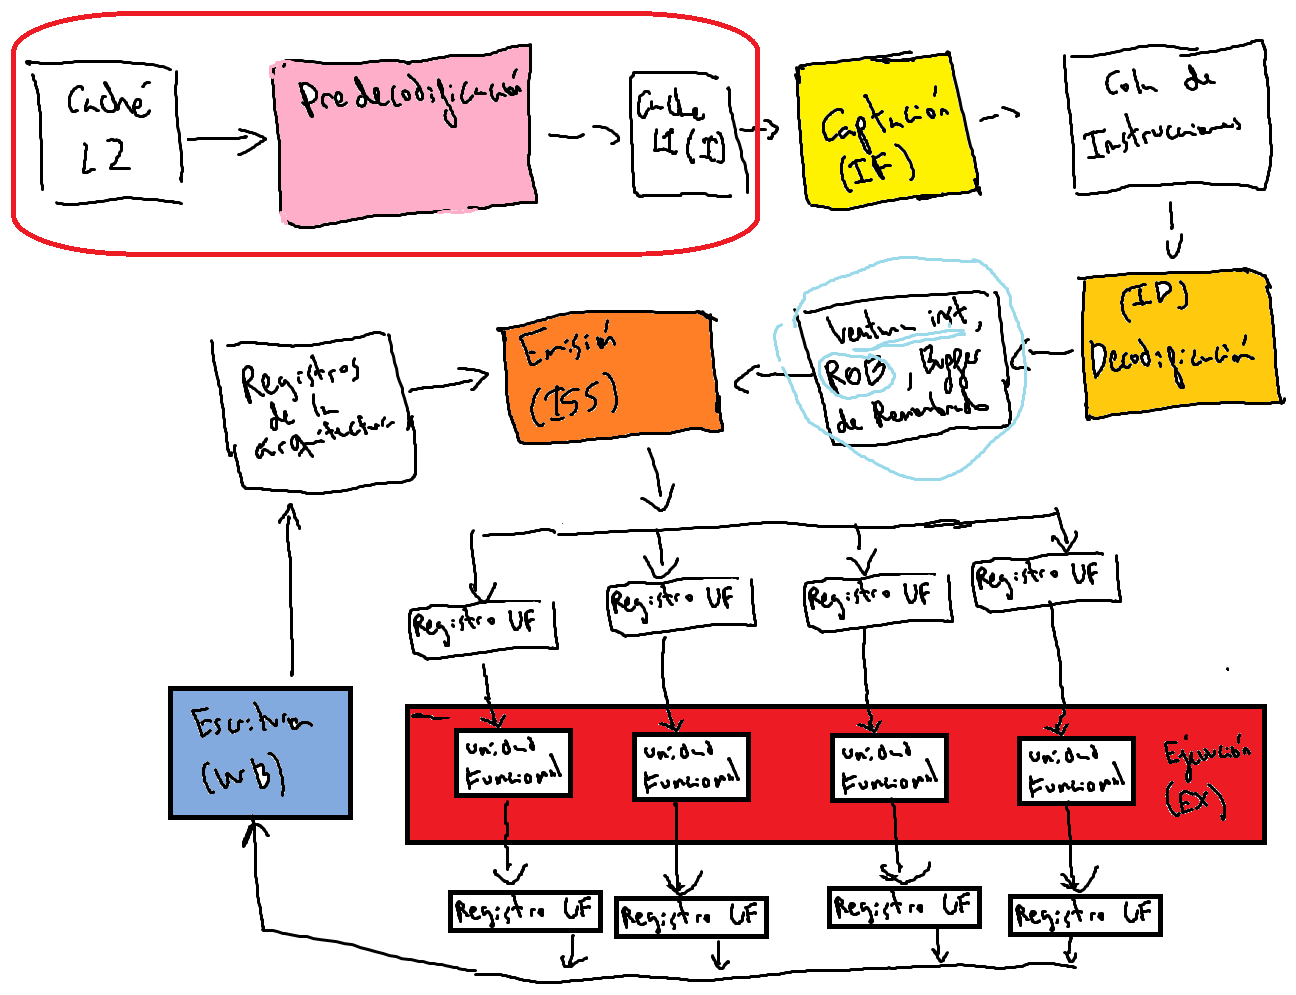 Caché
L2
Predecodificación
Cache
L1 (I)
Captación
(IF)
Cola de
Instrucciones
(ID)
Decodificación
Ventana inst,
ROB, Buffer
de Renombrado
Emisión
(ISS)
Registros
de la
arquitectura
Registro UF
Registro UF
Registro UF
Registro UF
Escritura
(WB)
Unidad
Funcional
Unidad
Funcional
Unidad
Funcional
Unidad
Funcional
Ejecución
(EX)
Registro UF
Registro UF
Registro UF
Registro UF